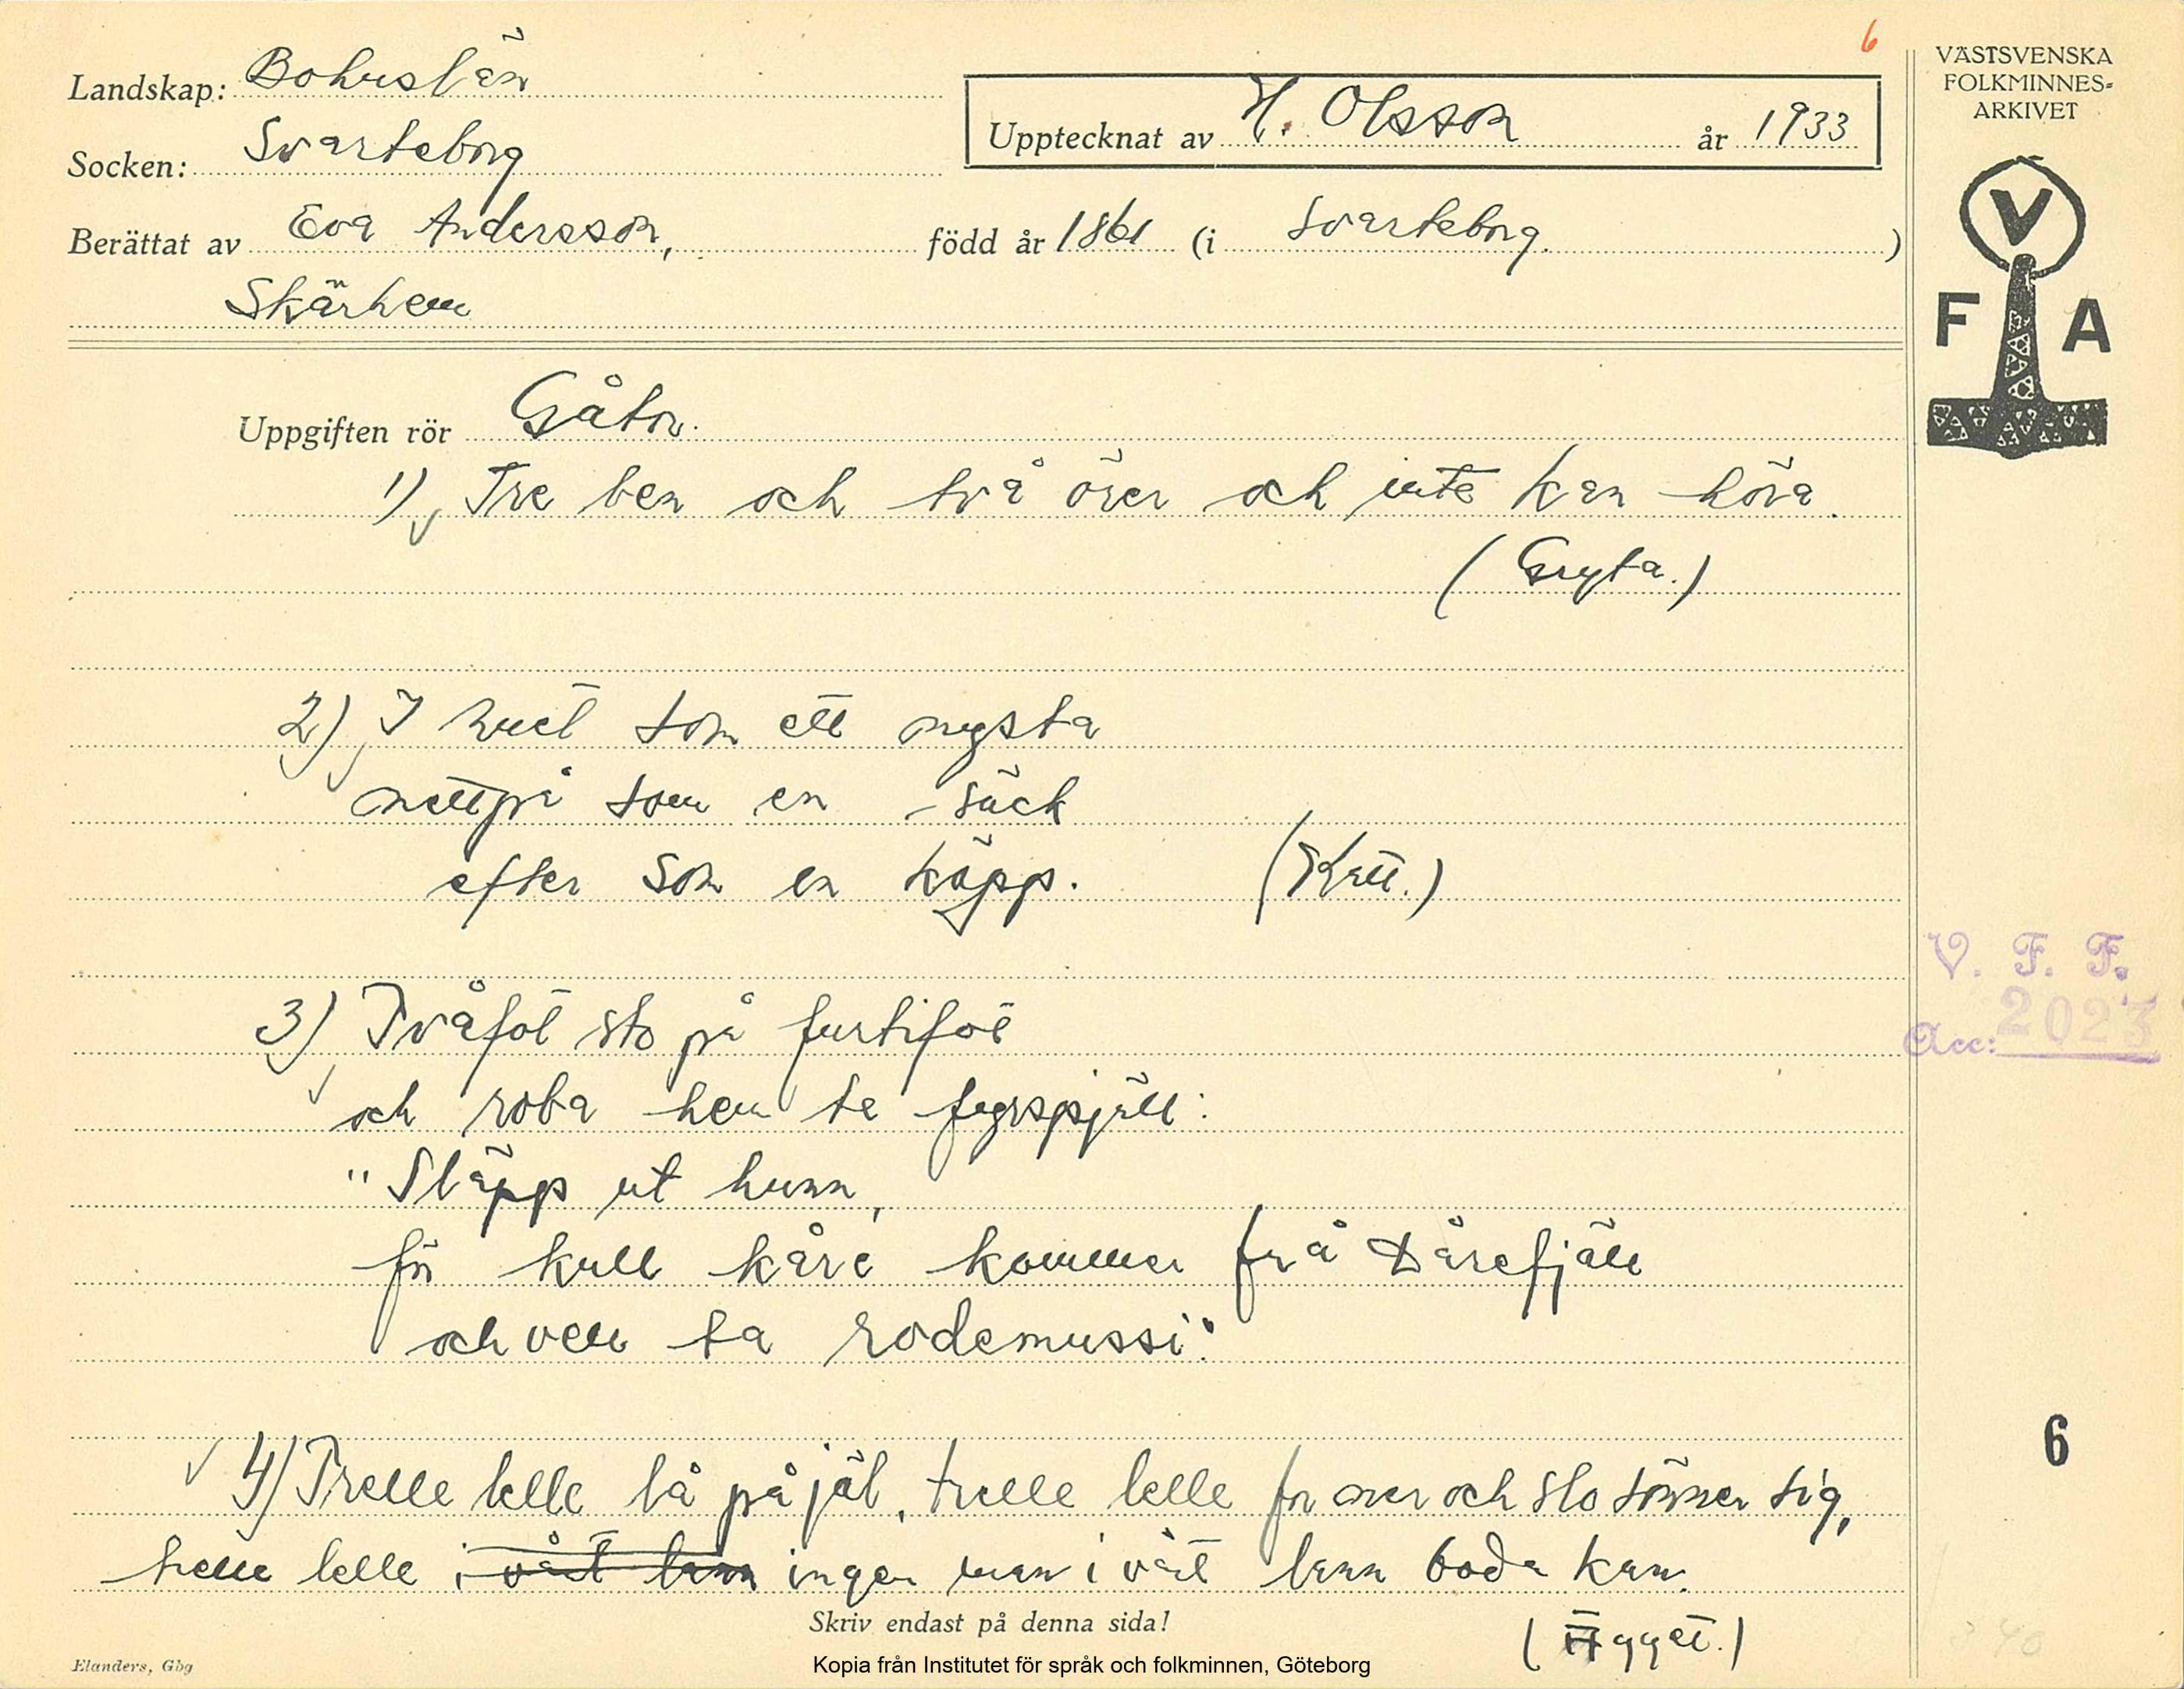 6
VÄSTSVENSKA
FOLKMINNES-
ARKIVET
V
F A
Landskap: Bohuslän
Upptecknat av H. Olsson år 1933
Socken: Svarteborg
Berättat av Eva Andersson, född år 1861 (i Svarteborg.)
Skärhem
Uppgiften rör Gåtor.
1) Tre ben och två örer och inte kan höra.
(Gryta.)
2) I huet som ett nysta
mettpå som en säck
efter som en käpp. (Katt.)
3) Tvåfot sto på furtifot
och roba hem te fyrspjäll:
"Släpp ut hunn,
för kull kåre kommer frå Dårefjäll
och vell ta rodemussi".
V. F. F.
Acc: 2023
6
4) Trelle lelle lå på jäl, trelle lelle for ner och slo sönner sig,
trelle lelle i vårt lann ingen man i vårt lann boda kan.
(Ägget.)
Skriv endast på denna sida!
Elanders, Gbg
Kopia från Institutet för språk och folkminnen, Göteborg